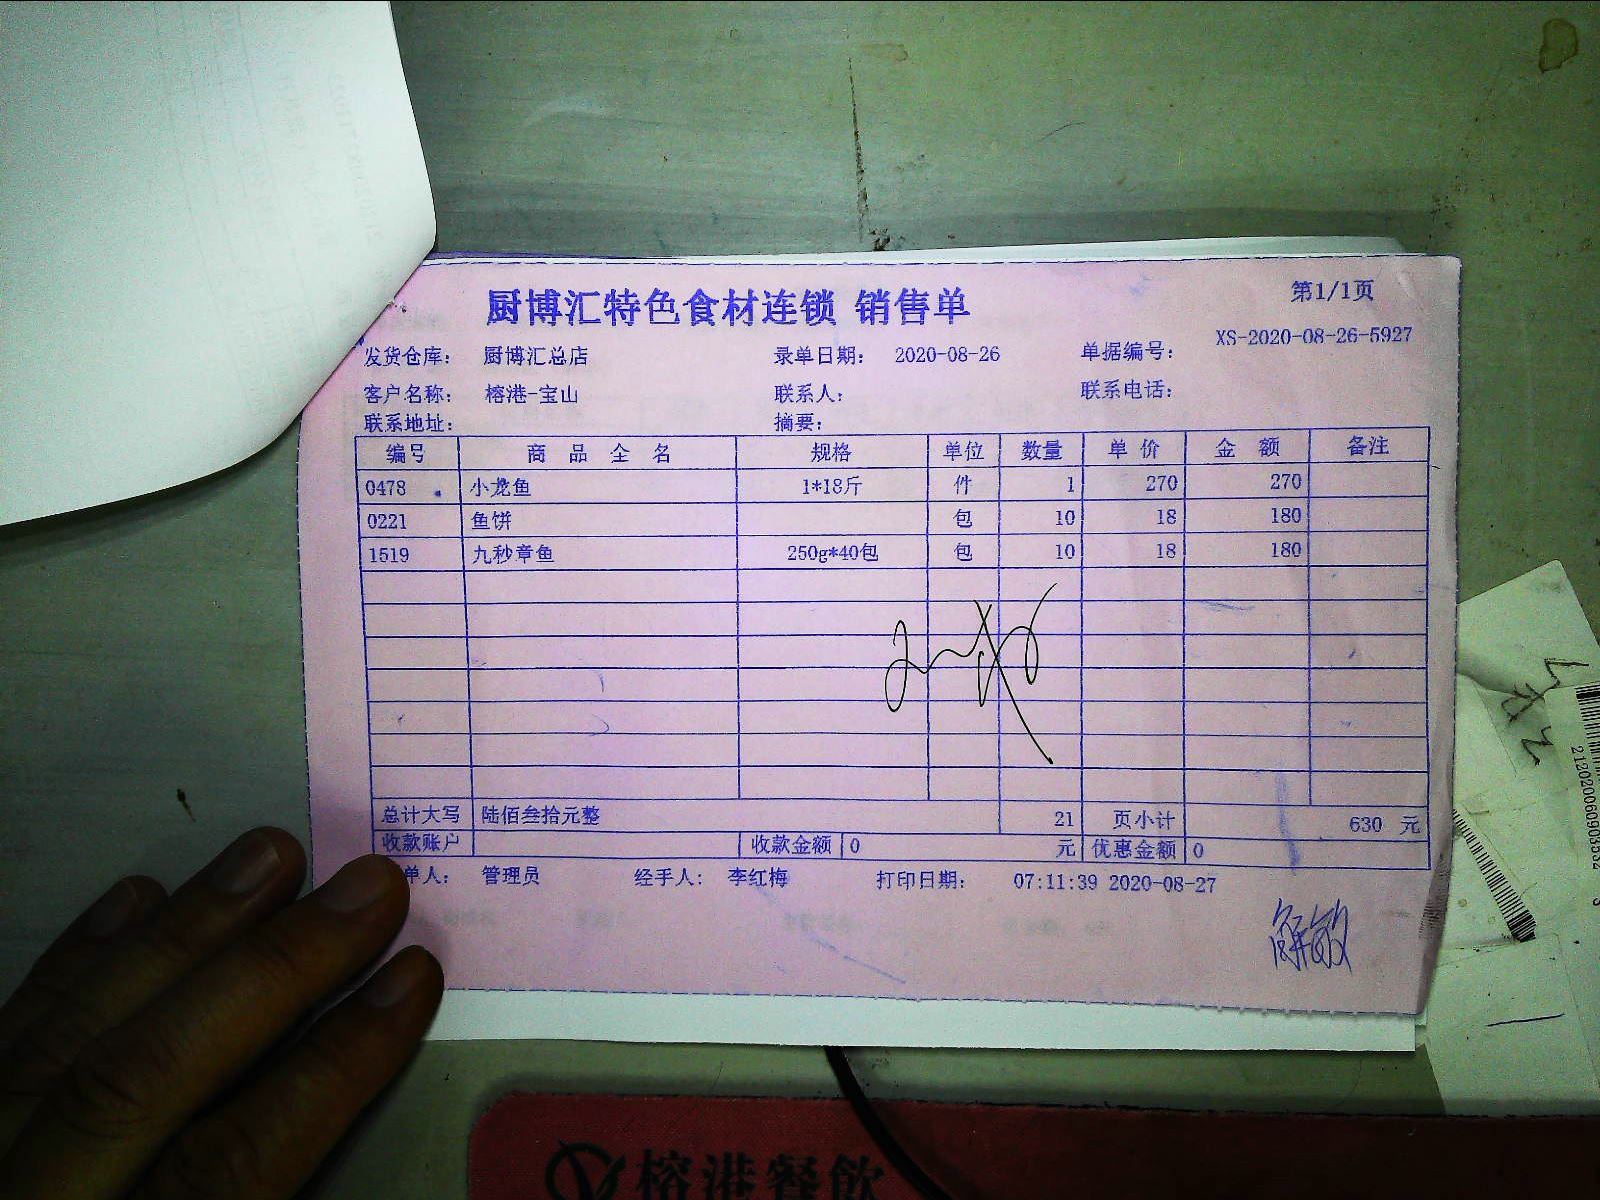 厨博汇特色食材连锁 销售单
第1/1页
发货仓库： 厨博汇总店 录单日期： 2020-08-26 单据编号： XS-2020-08-26-5927
客户名称： 榕港-宝山 联系人： 联系电话：
联系地址： 摘要：
编号 商品全名 规格 单位 数量 单价 金额 备注
0478 小龙鱼 1*18斤 件 1 270 270
0221 鱼饼 包 10 18 180
1519 九秒章鱼 250g*40包 包 10 18 180
总计大写 陆佰叁拾元整 21 页小计 630 元
收款账户 收款金额 0 元 优惠金额 0
单人： 管理员 经手人： 李红梅 打印日期： 07:11:39 2020-08-27
解敏
榕港餐飲